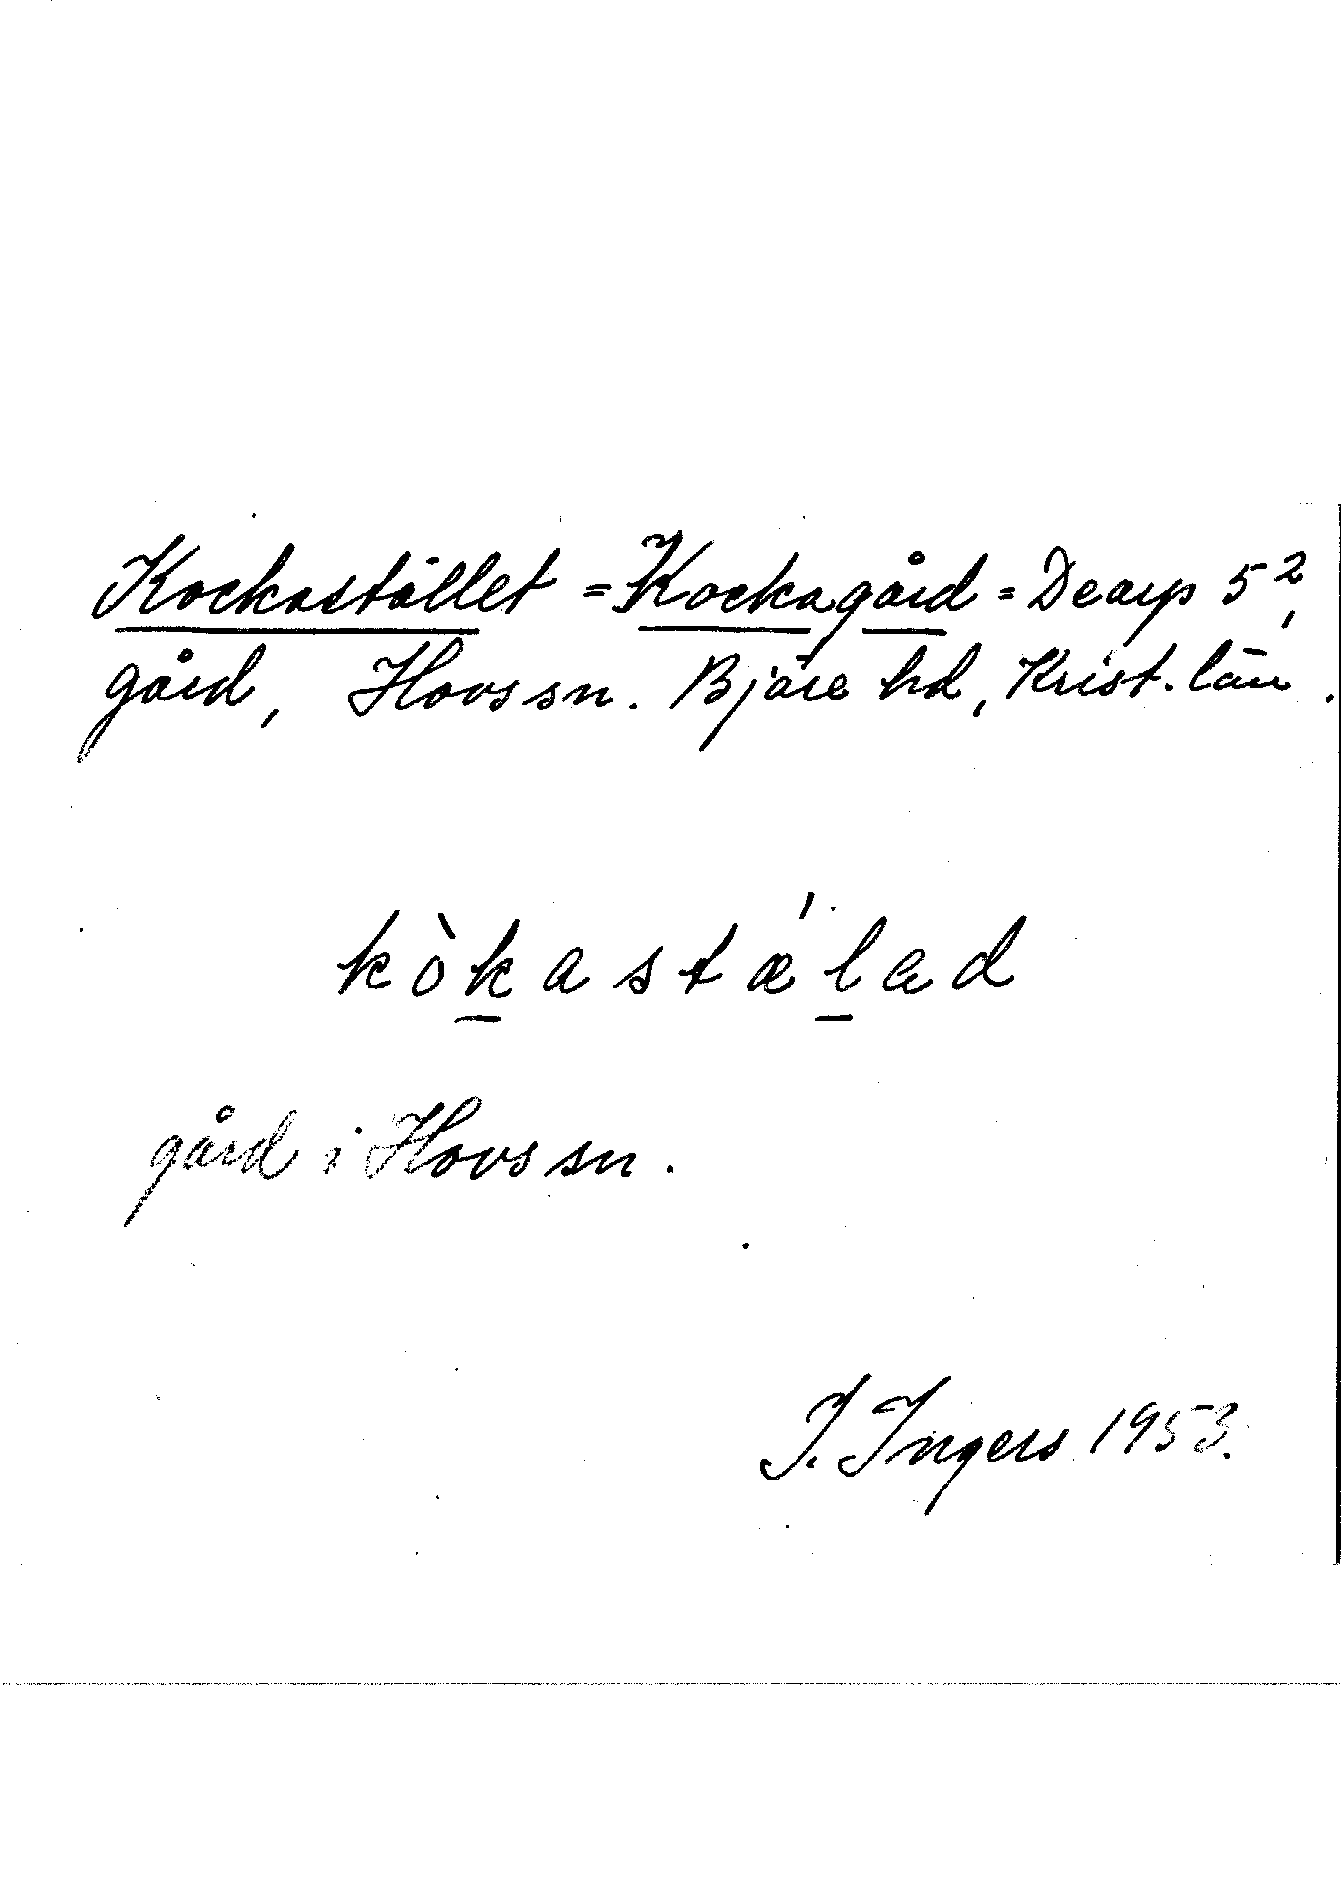 Kockastället = Kockagård = Dearp 5²,
gård, Hovs sn. Bjäre hd, Krist. län.
kòkastǽlad
gård i Hovs sn.
I. Ingers 1953.